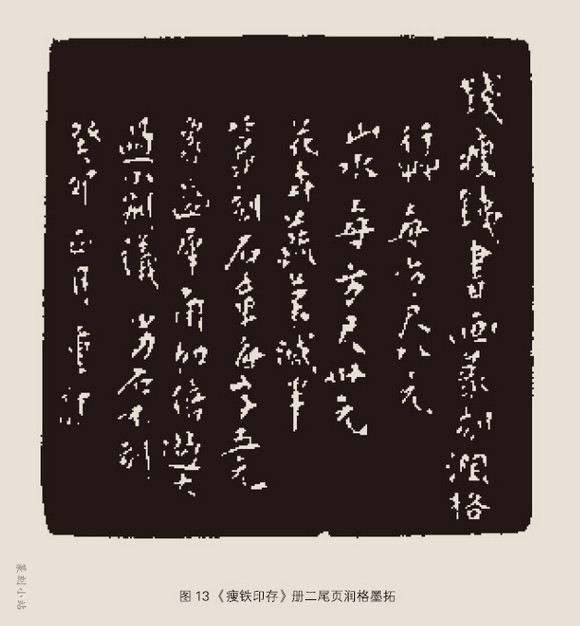 錢瘦鐵書画篆刻潤格
行艸每方尺八元
山水每方尺卅元
花卉蔬菓減半
篆刻石章每字五元
象齒犀角加倍過大
過小別議 劣石不刻
癸卯正月重訂
图 13《瘦铁印存》册二尾页润格墨拓
篆刻小站